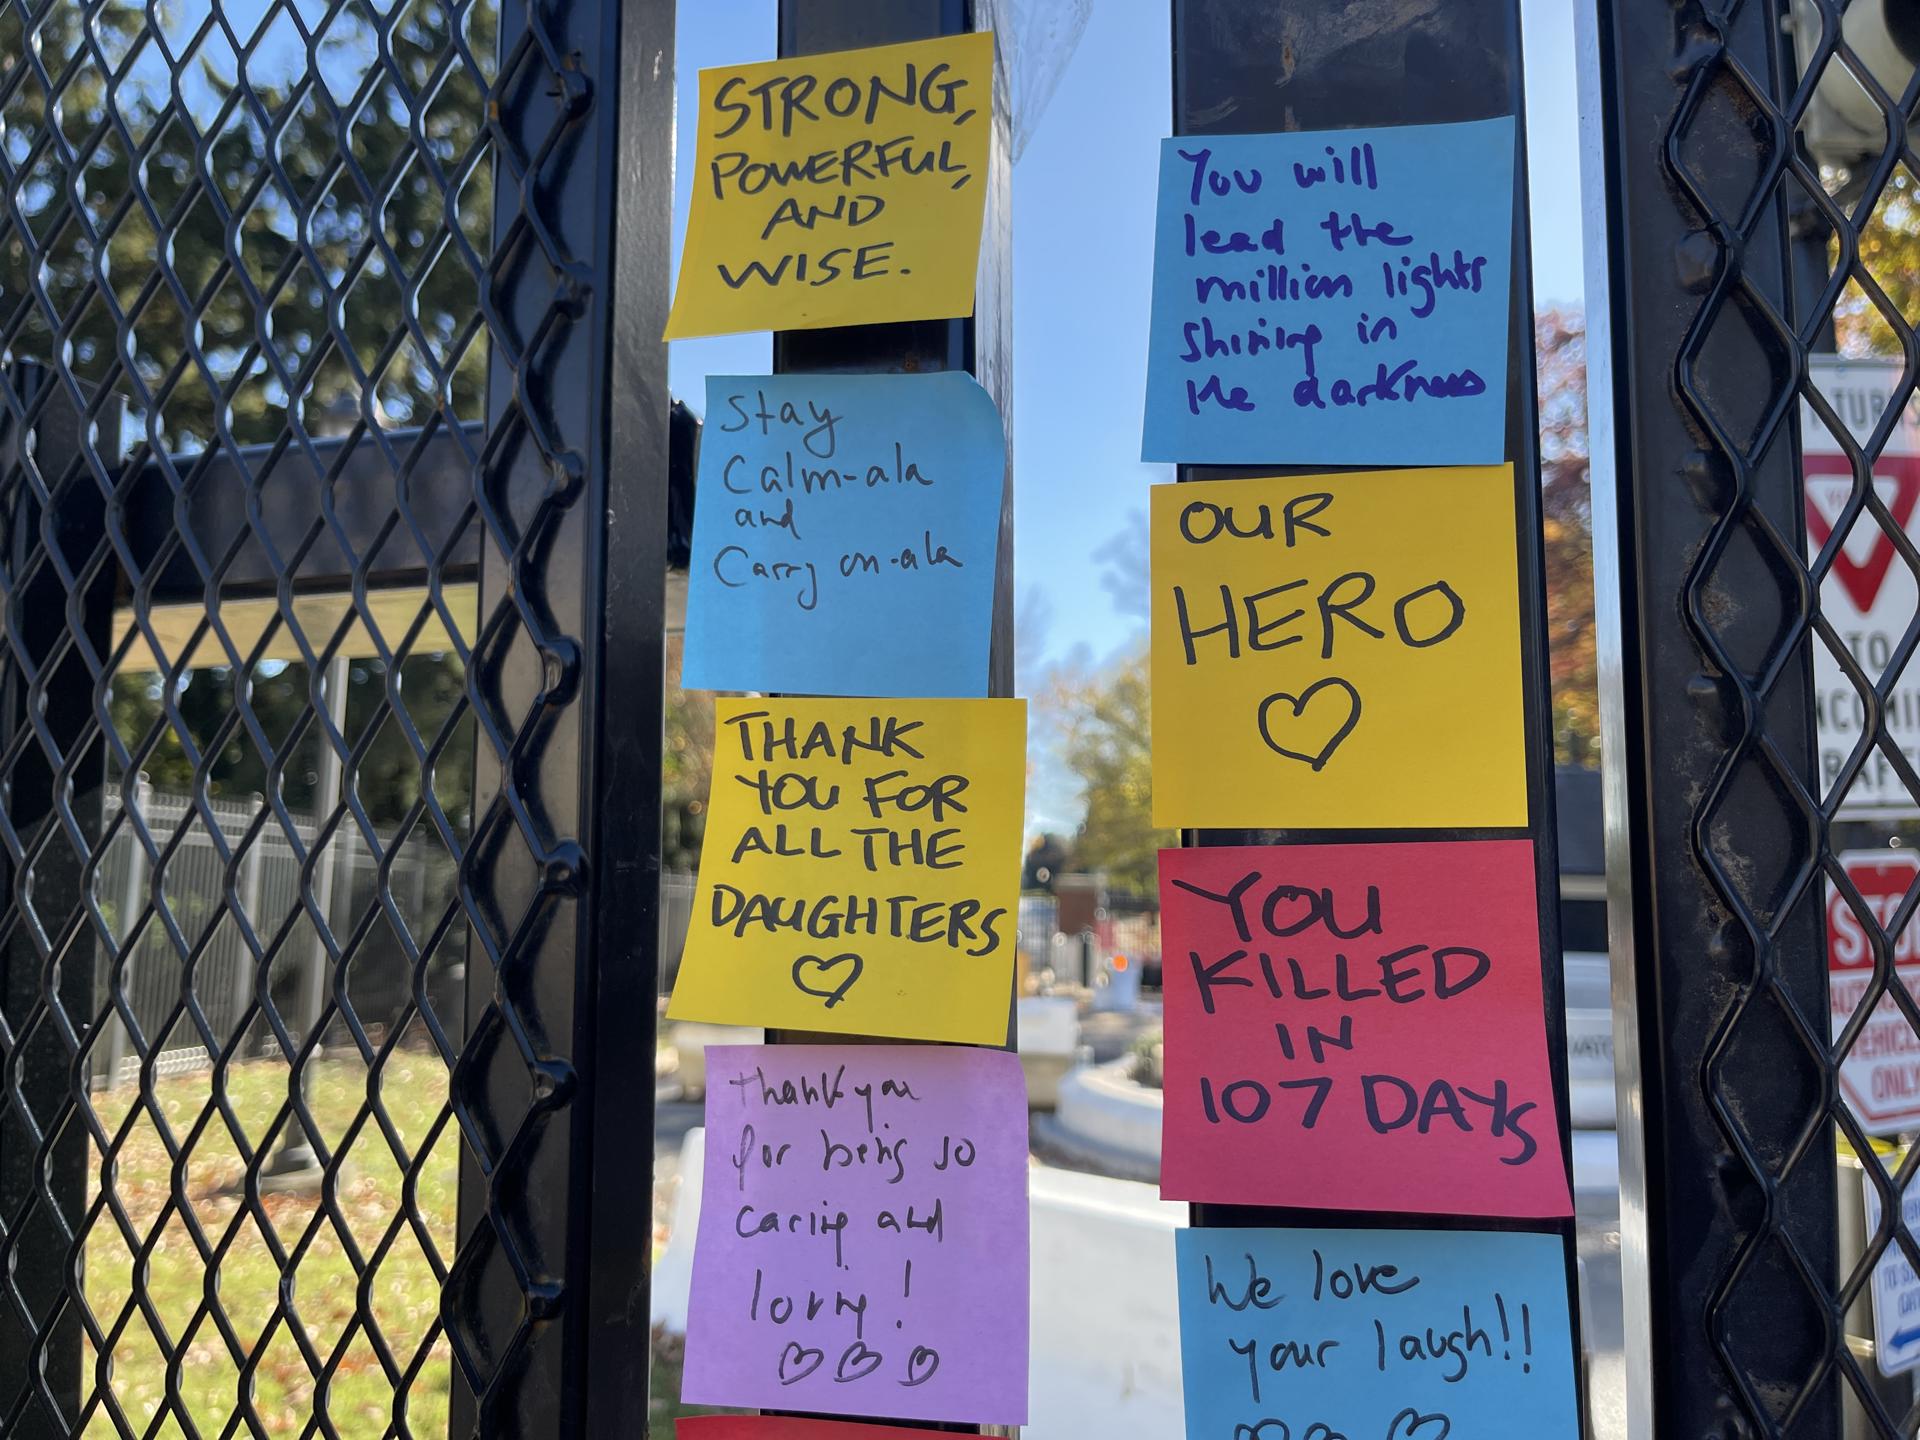 STRONG,
POWERFUL,
AND
WISE.
Stay
Calm-ala
and
Carry on-ala
THANK
YOU FOR
ALL THE
DAUGHTERS
Thank you
for being so
caring and
loving!
You will
lead the
million lights
shining in
the darkness
OUR
HERO
YOU
KILLED
IN
107 DAYS
We love
your laugh!!
TURN
TO
STOP
VEHICL
ONLY